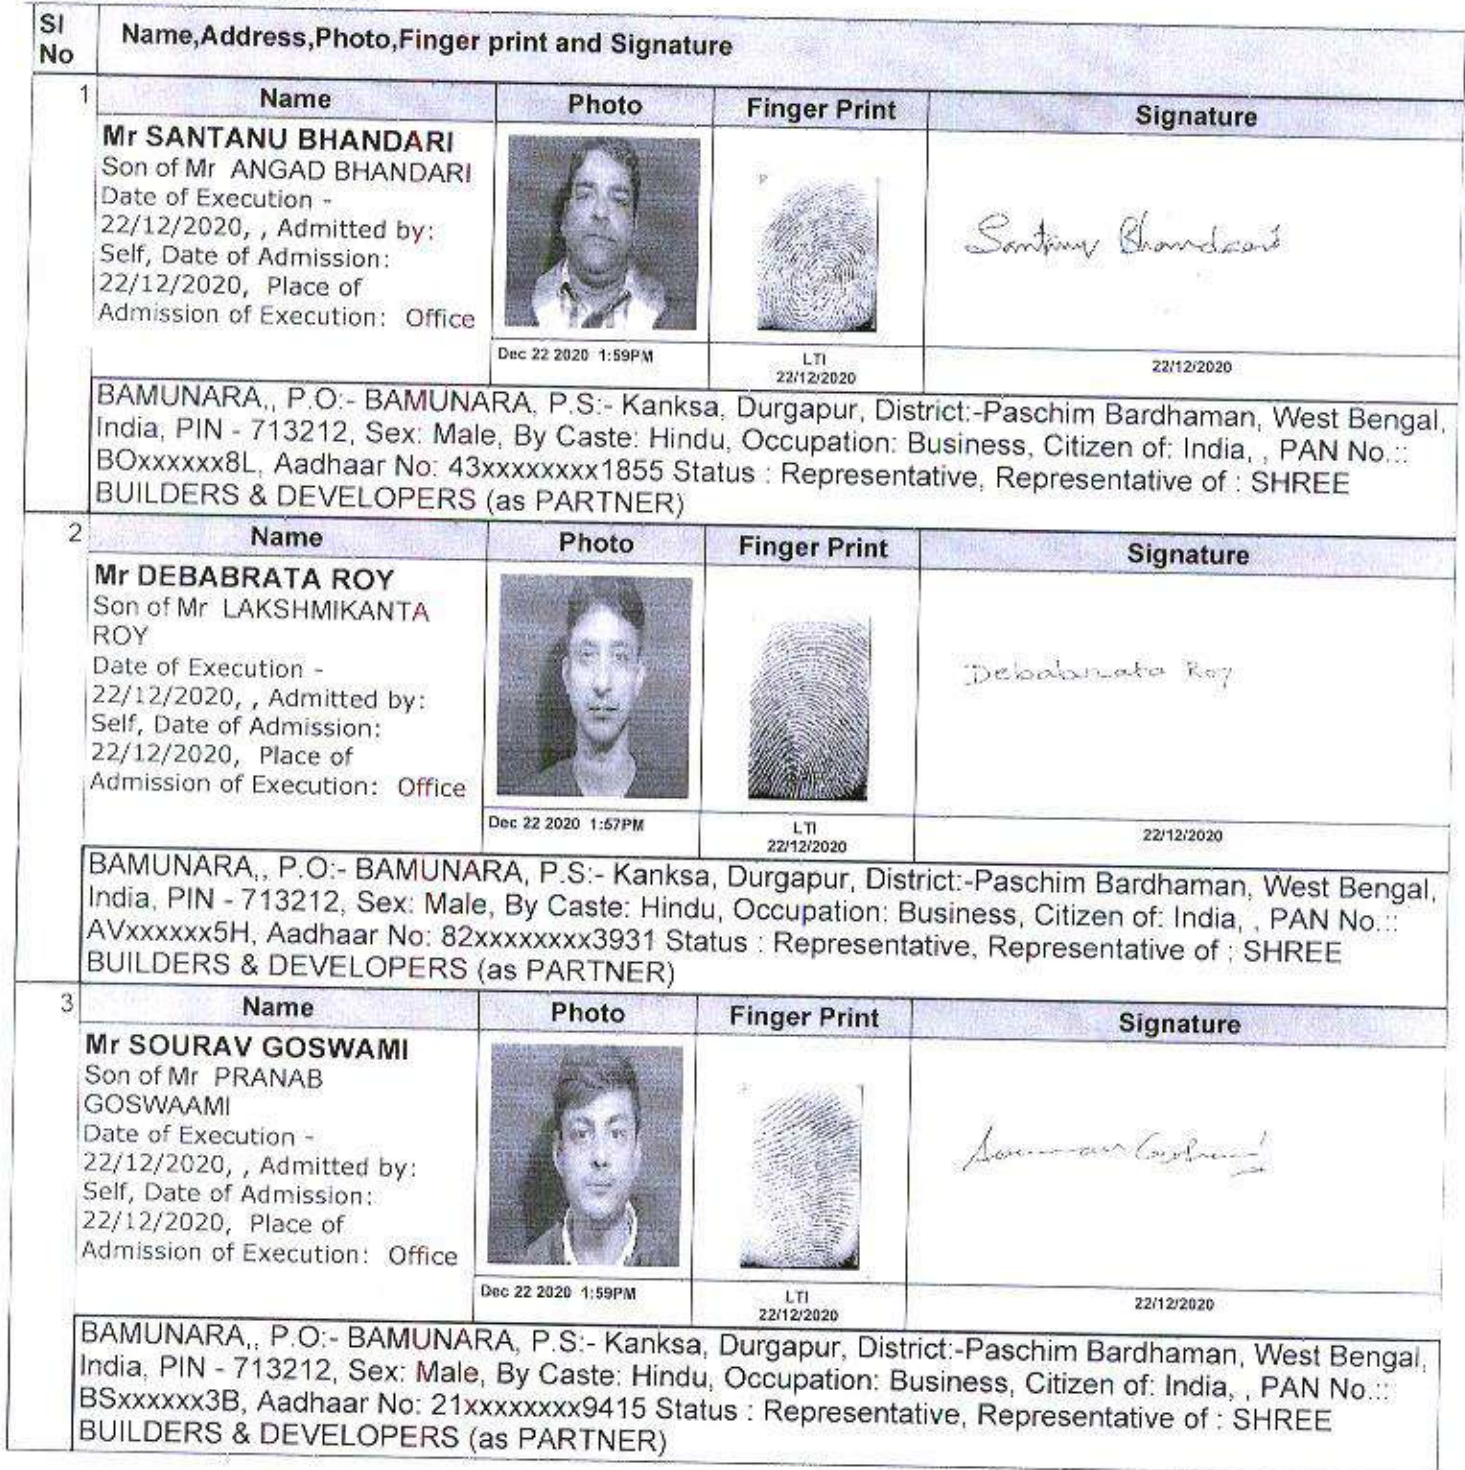 Sl
No
Name,Address,Photo,Finger print and Signature
1
Name
Photo
Finger Print
Signature
Mr SANTANU BHANDARI
Son of Mr ANGAD BHANDARI
Date of Execution -
22/12/2020, , Admitted by:
Self, Date of Admission:
22/12/2020, Place of
Admission of Execution: Office
Santanu Bhandari
Dec 22 2020 1:59PM
LTI
22/12/2020
22/12/2020
BAMUNARA,, P.O:- BAMUNARA, P.S:- Kanksa, Durgapur, District:-Paschim Bardhaman, West Bengal,
India, PIN - 713212, Sex: Male, By Caste: Hindu, Occupation: Business, Citizen of: India, , PAN No.::
BOxxxxxx8L, Aadhaar No: 43xxxxxxxx1855 Status : Representative, Representative of : SHREE
BUILDERS & DEVELOPERS (as PARTNER)
2
Name
Photo
Finger Print
Signature
Mr DEBABRATA ROY
Son of Mr LAKSHMIKANTA
ROY
Date of Execution -
22/12/2020, , Admitted by:
Self, Date of Admission:
22/12/2020, Place of
Admission of Execution: Office
Debabrata Roy
Dec 22 2020 1:57PM
LTI
22/12/2020
22/12/2020
BAMUNARA,, P.O:- BAMUNARA, P.S:- Kanksa, Durgapur, District:-Paschim Bardhaman, West Bengal,
India, PIN - 713212, Sex: Male, By Caste: Hindu, Occupation: Business, Citizen of: India, , PAN No.::
AVxxxxxx5H, Aadhaar No: 82xxxxxxxx3931 Status : Representative, Representative of : SHREE
BUILDERS & DEVELOPERS (as PARTNER)
3
Name
Photo
Finger Print
Signature
Mr SOURAV GOSWAMI
Son of Mr PRANAB
GOSWAAMI
Date of Execution -
22/12/2020, , Admitted by:
Self, Date of Admission:
22/12/2020, Place of
Admission of Execution: Office
Dec 22 2020 1:59PM
LTI
22/12/2020
22/12/2020
BAMUNARA,, P.O:- BAMUNARA, P.S:- Kanksa, Durgapur, District:-Paschim Bardhaman, West Bengal,
India, PIN - 713212, Sex: Male, By Caste: Hindu, Occupation: Business, Citizen of: India, , PAN No.::
BSxxxxxx3B, Aadhaar No: 21xxxxxxxx9415 Status : Representative, Representative of : SHREE
BUILDERS & DEVELOPERS (as PARTNER)